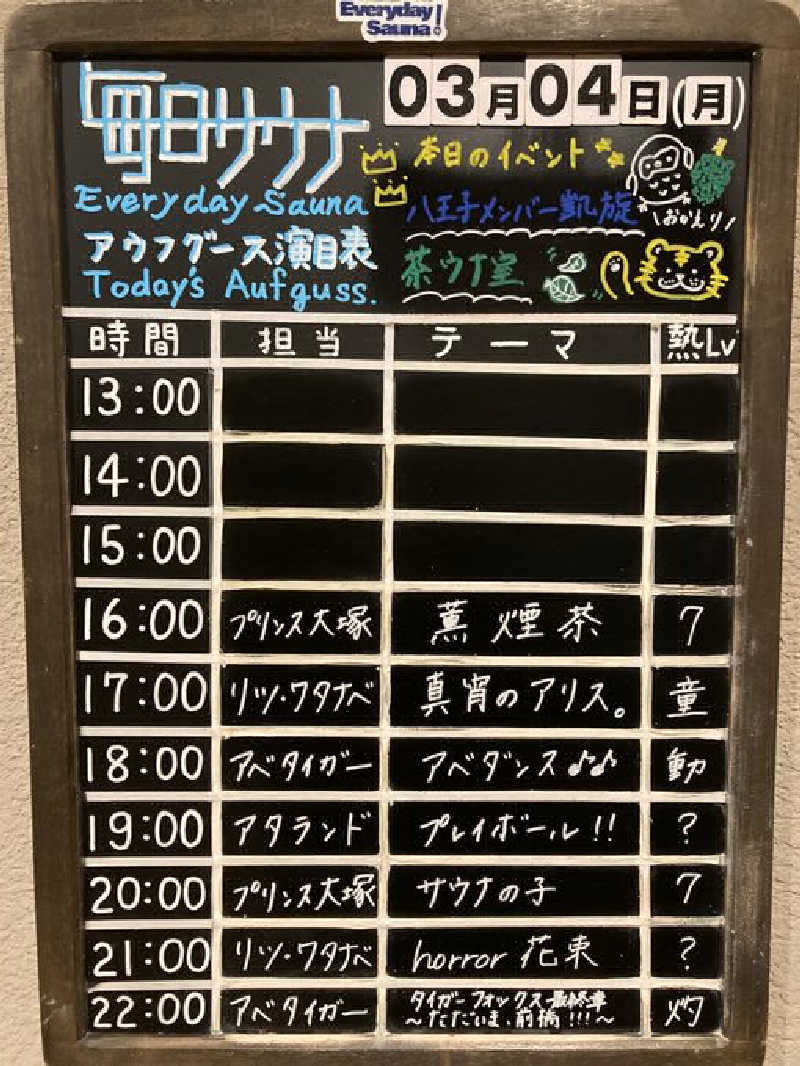 Everyday
Sauna!
03月04日(月)
毎日サウナ
Everyday Sauna
アウフグース演目表
Today's Aufguss.
本日のイベント
八王子メンバー凱旋
\おかえり/
茶ウナ室
時間 担当 テーマ 熱Lv
13:00
14:00
15:00
16:00 プリンス大塚 薫煙茶 7
17:00 リツ・ワタナベ 真宵のアリス。 童
18:00 アベタイガー アベダンス♪♪ 動
19:00 アタランド プレイボール!! ?
20:00 プリンス大塚 サウナの子 7
21:00 リツ・ワタナベ horror 花束 ?
22:00 アベタイガー タイガーフォックス最終章 灼
～ただいま、前橋!!!～